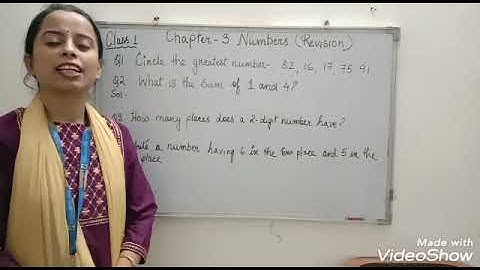 Class 1 Chapter-3 Numbers (Revision)
Q1 Circle the greatest number- 32, 16, 17, 75 91
Q2 What is the sum of 1 and 4?
Sol-
How many places does a 2-digit number have?
a number having 6 in the tens place and 5 in the
place
Made with
VideoShow